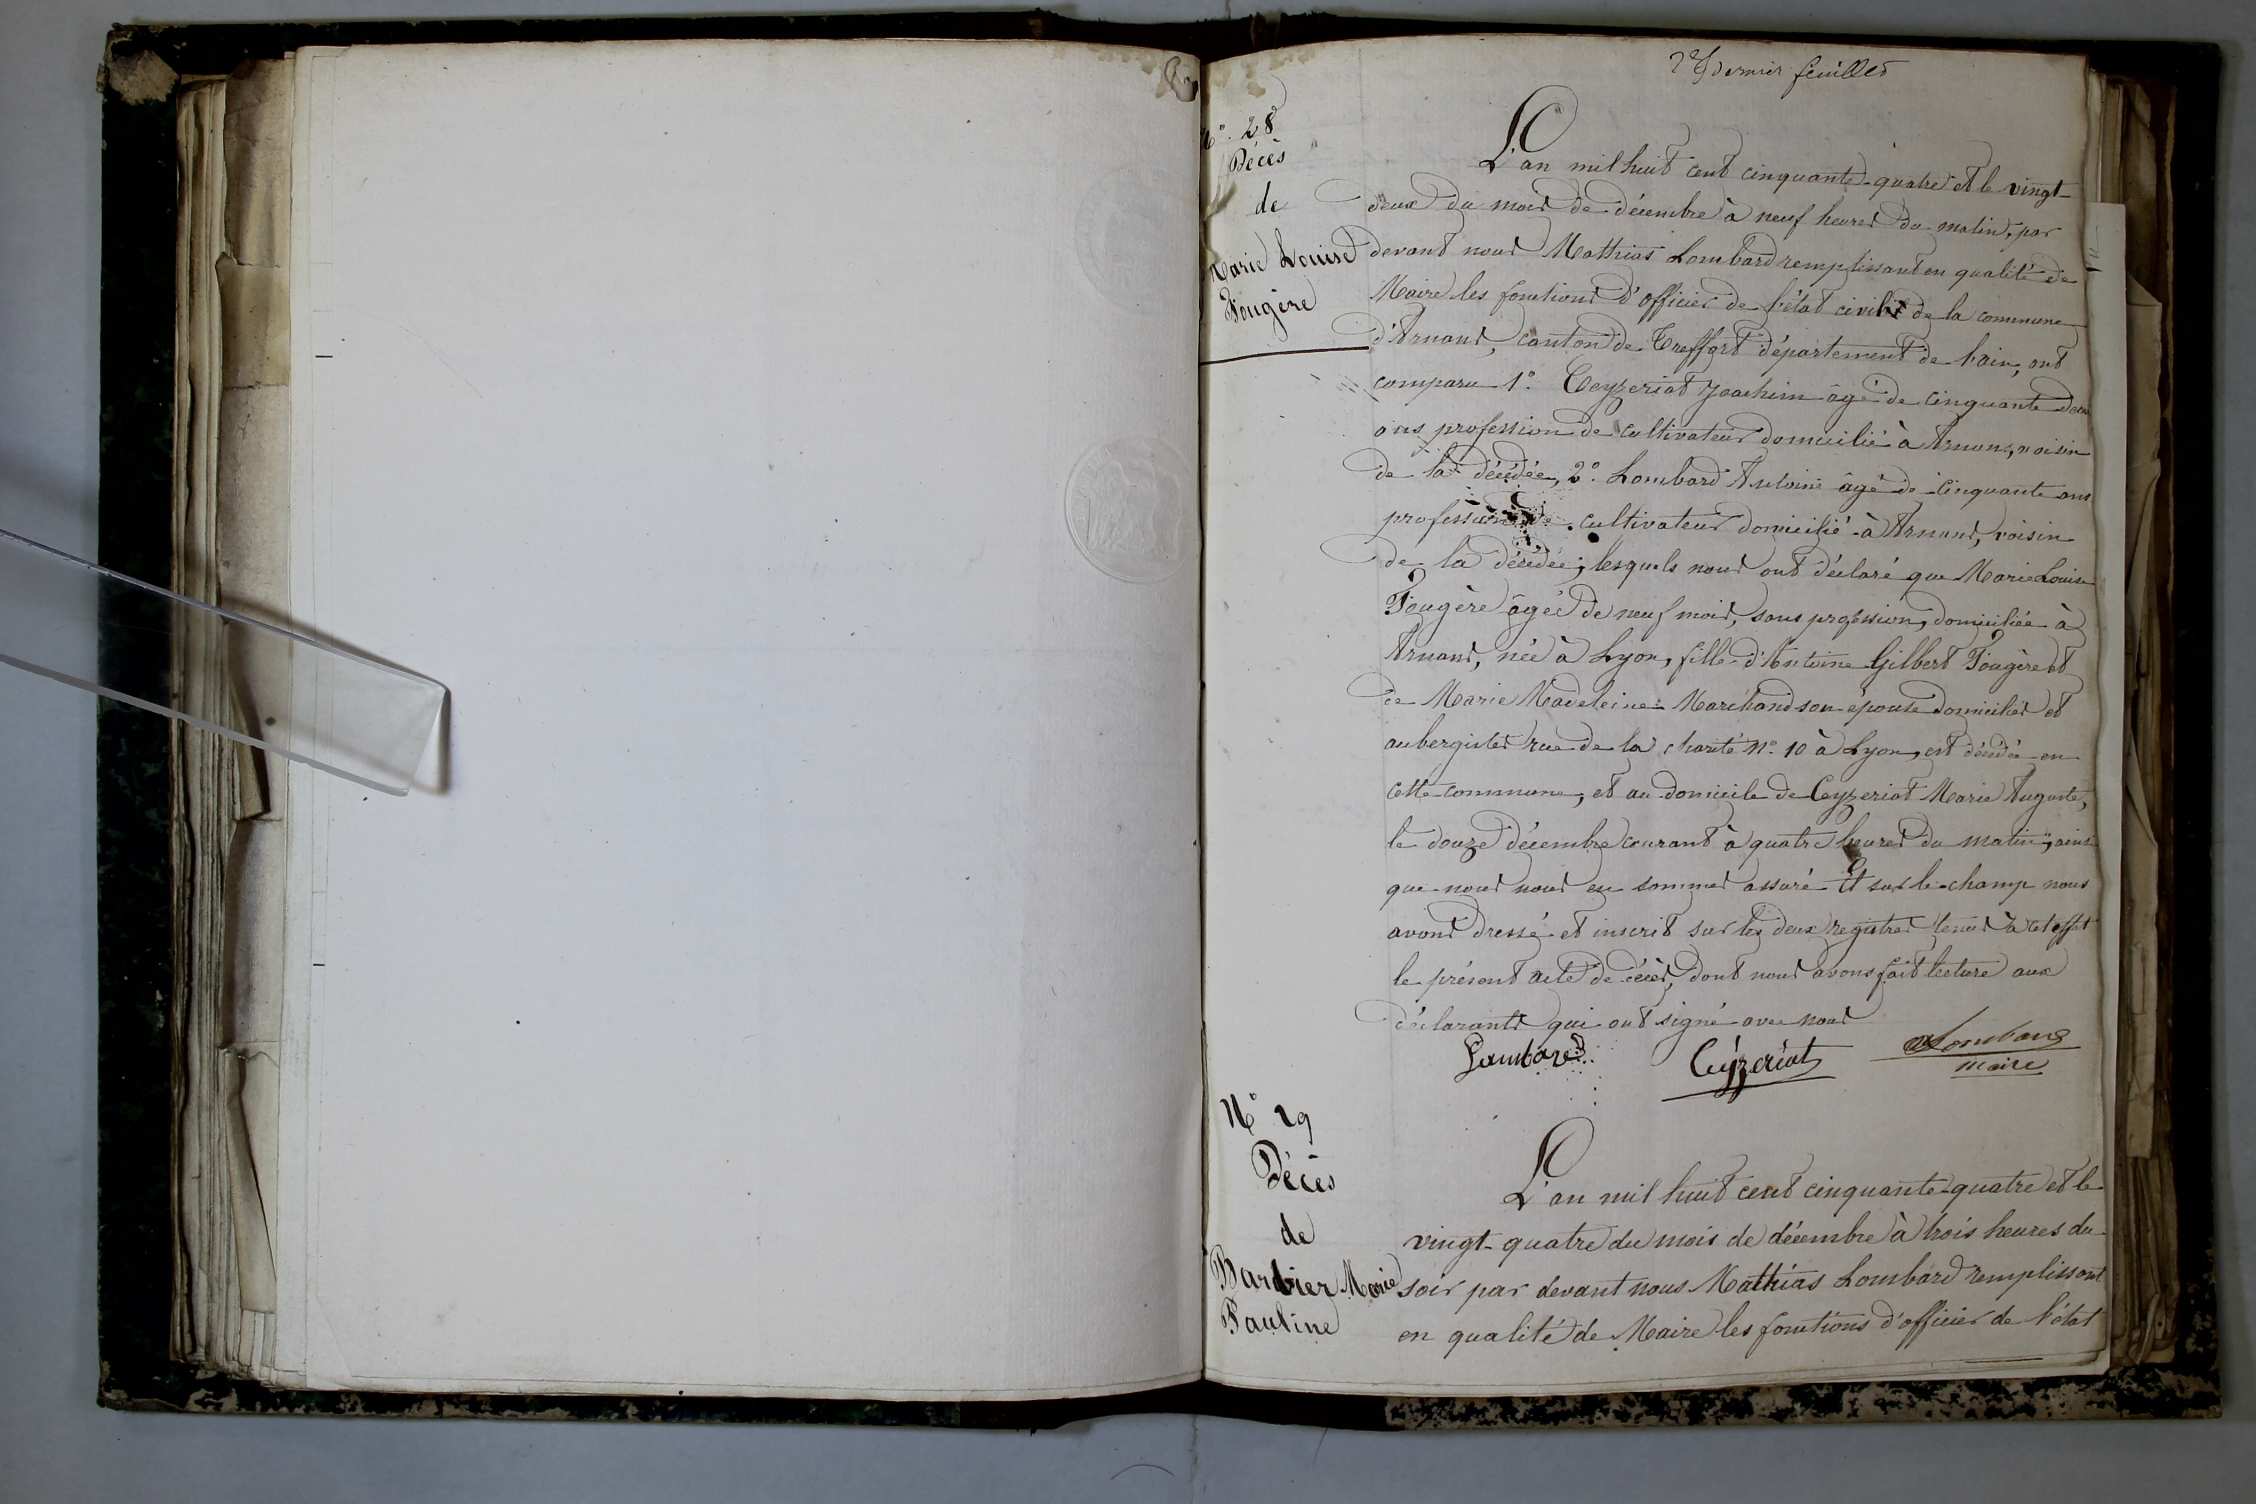 dernier feuillet
N° 28
Décès
de
Marie Louise
Fougère
L'an mil huit cent cinquante-quatre et le vingt-
deux du mois de décembre à neuf heures du matin, par
devant nous Mathias Lombard remplissant en qualité de
Maire les fonctions d'officier de l'état civil de la commune
d'Arnans, canton de Treffort département de l'ain, ont
comparu 1° Ceyzeriat Joachim âgé de cinquante deux
ans profession de cultivateur domicilié à Arnans, voisin
de la décédée, 2° Lombard Antoine âgé de cinquante ans
profession de cultivateur domicilié à Arnans, voisin
de la décédée; lesquels nous ont déclaré que Marie Louise
Fougère âgée de neuf mois, sans profession, domiciliée à
Arnans, née à Lyon, fille d'Antoine Gilbert Fougère et
de Marie Madeleine Marchand son épouse domiciliés et
aubergistes rue de la charité n° 10 à Lyon, est décédée en
cette commune, et au domicile de Ceyzeriat Marie Auguste,
le douze décembre courant à quatre heures du matin, ainsi
que nous nous en sommes assuré Et sur le-champ nous
avons dressé et inscrit sur les deux registres tenus à cet effet
le présent acte de décès, dont nous avons fait lecture aux
déclarants qui ont signé avec nous
Lombard Ceyzeriat Lombard
maire
N° 29
Décès
de
Barbier Marie
Pauline
L'an mil huit cent cinquante-quatre et le
vingt-quatre du mois de décembre à trois heures du
soir par devant nous Mathias Lombard remplissant
en qualité de Maire les fonctions d'officier de l'état